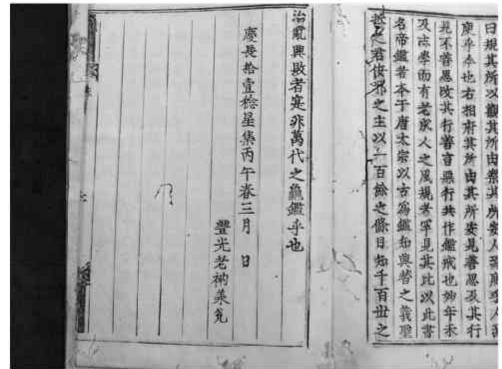 曰規其所以觀其所由察其所安人焉廋哉人
廋乎本也右相府其所由其所安見善思及其行
見不善思改其行善言惡行共作鑑戒也妙年未
及志學而有老成人之風規者罕見其比以此書
名帝鑑者本于唐太宗以古為鑑知興替之義聖
哲之君佞邪之主以一百餘之條目知千百世之
治亂興敗者寔非萬代之龜鑑乎也
慶長拾壹稔星集丙午春三月 日
豐光老衲承兌